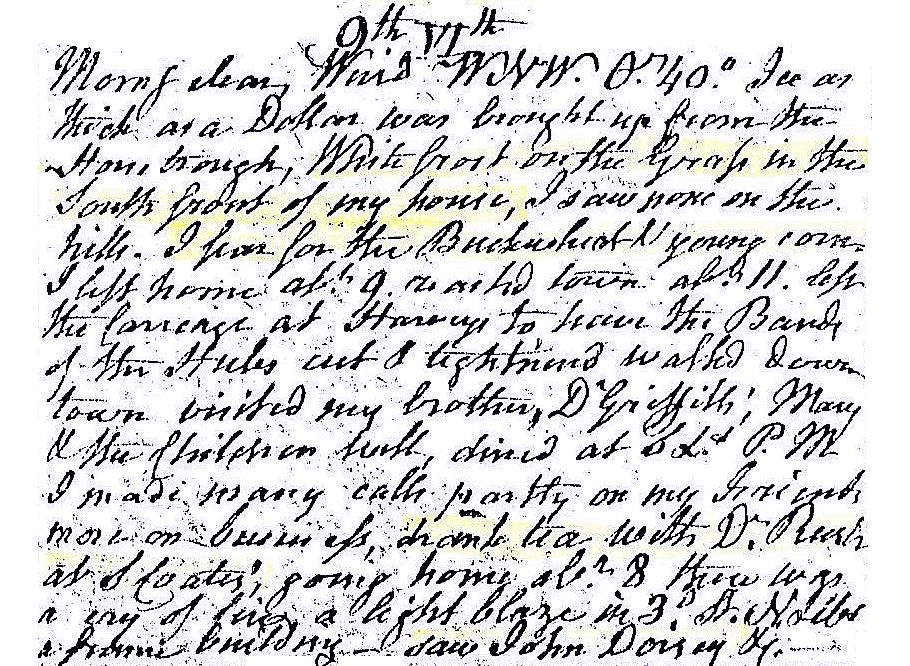 9th VIth
Morng clear, Wind WNW. Or 40° Ice as
thick as a Dollar was brought up from the
Horse trough, White frost on the Grass in the
South front of my house, I saw none on the
hills. I fear for the Buckwheat & young corn
I left home abt 9. reached town abt 11. left
the Carriage at Harveys to have the Bands
of the Hubs cut & tightnend walked down
town visited my brother, Dr Griffitts', Mary
& the Children well, dined at P. M
I made many calls partly on my Friends
more on business, drank tea with Dr. Rush
at S Coates', going home abt 8 there was
a cry of fire, a light blaze in 3d St. N Libs
a frame building — saw John Dorsey &c.